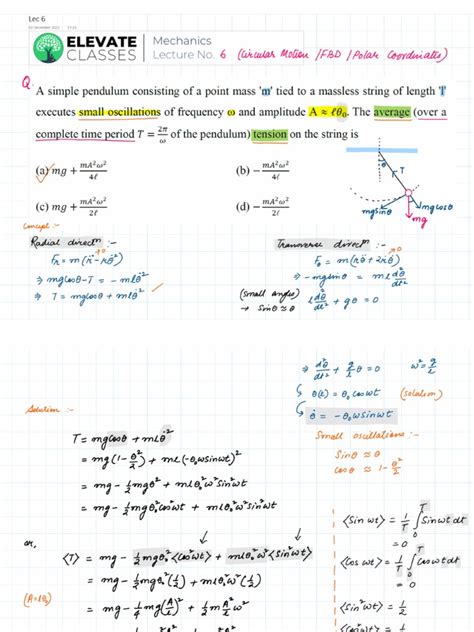 Lec 6
ELEVATE
CLASSES
Mechanics
Lecture No. 6 (Circular Motion /FBD /Polar Coordinates)
Q. A simple pendulum consisting of a point mass 'm' tied to a massless string of length 'l'
executes small oscillations of frequency ω and amplitude A ≈ ℓθ₀. The average (over a
complete time period T = 2π/ω of the pendulum) tension on the string is
(a) mg + mA²ω²/4ℓ
(b) − mA²ω²/4ℓ
(c) mg + mA²ω²/2ℓ
(d) − mA²ω²/2ℓ
θ
T
mgsinθ
mgcosθ
mg
Concept :-
Radial directⁿ :-
Fᵣ = m(r̈ - rθ̇²)
→0
⇒ mgcosθ - T = - mlθ̇²
⇒ T = mgcosθ + mlθ̇²
Transverse directⁿ :-
→0
F_θ = m(rθ̈ + 2ṙθ̇)
⇒ -mgsinθ = ml d²θ/dt²
(small angles)
→ sinθ ≈ θ
l d²θ/dt² + gθ = 0
⇒ d²θ/dt² + g/l θ = 0
ω² = g/l
θ(t) = θ₀ cosωt (solution)
θ̇ = - θ₀ω sinωt
Small oscillations :-
Sinθ ≈ θ
Cosθ ≈ 1 - θ²/2
Solution :-
T = mgcosθ + mlθ̇²
= mg(1 - θ²/2) + ml(-θ₀ω sinωt)²
= mg - ½mgθ² + mlθ₀²ω² sin²ωt
= mg - ½mgθ₀² cos²ωt + mlθ₀²ω² sin²ωt
or,
⟨T⟩ = mg - ½mgθ₀²⟨cos²ωt⟩ + mlθ₀²ω²⟨sin²ωt⟩
= mg - ½mgθ₀²(½) + mlθ₀²ω²(½)
(A = lθ₀)
= mg - ¼mg(A/l)² + ½m A²/l ω²
⟨Sinωt⟩ = 1/T ∫₀ᵀ Sinωt dt
= 0
⟨Cosωt⟩ = 1/T ∫₀ᵀ Cosωt dt
= 0
⟨Sin²ωt⟩ = ½